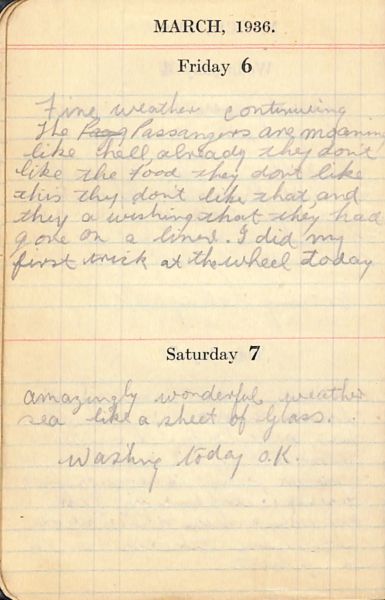 MARCH, 1936.
Friday 6
Fine weather continuing
The Passangers are moaning
like hell already they don't
like the food they dont like
this they don't like that and
they a wishing that they had
gone on a liner. I did my
first trick at the wheel today
Saturday 7
amazingly wonderful weather
sea like a sheet of Glass.
Washing today O.K.